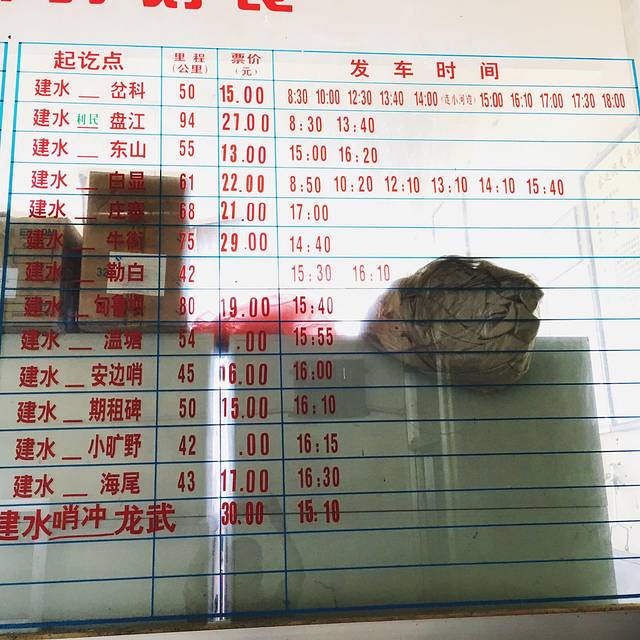 起讫点 里程(公里) 票价(元) 发车时间
建水__岔科 50 15.00 8:30 10:00 12:30 13:40 14:00(走小河边) 15:00 16:10 17:00 17:30 18:00
建水利民盘江 94 27.00 8:30 13:40
建水__东山 55 13.00 15:00 16:20
建水__白显 61 22.00 8:50 10:20 12:10 13:10 14:10 15:40
建水__庄寨 68 21.00 17:00
建水__牛街 75 29.00 14:40
建水__勒白 42 15:30 16:10
建水__甸 80 19.00 15:40
建水__温塘 54 .00 15:55
建水__安边哨 45 16.00 16:00
建水__期租碑 50 15.00 16:10
建水__小旷野 42 .00 16:15
建水__海尾 43 17.00 16:30
建水哨冲龙武 30.00 15:10